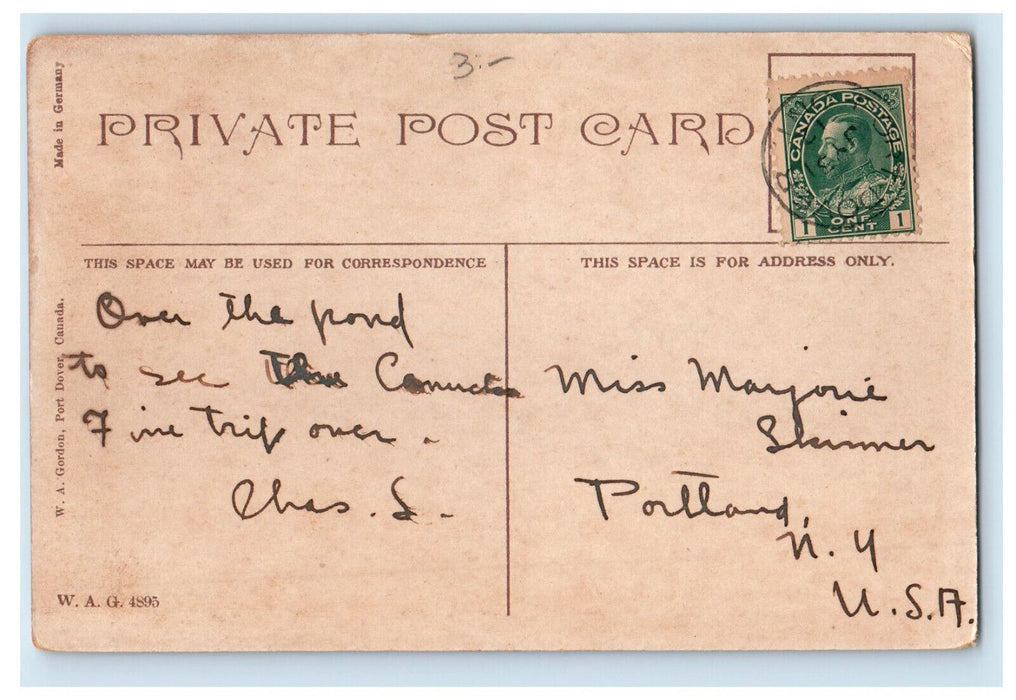 3:-
Made in Germany
PRIVATE POST CARD
CANADA POSTAGE
1 ONE CENT 1
THIS SPACE MAY BE USED FOR CORRESPONDENCE
THIS SPACE IS FOR ADDRESS ONLY.
W. A. Gordon, Port Dover, Canada.
Over the pond
to see the Canucks
Fine trip over -
Chas. S. -
Miss Marjorie
Skinner
Portland,
N. Y
U.S.A.
W. A. G. 4895